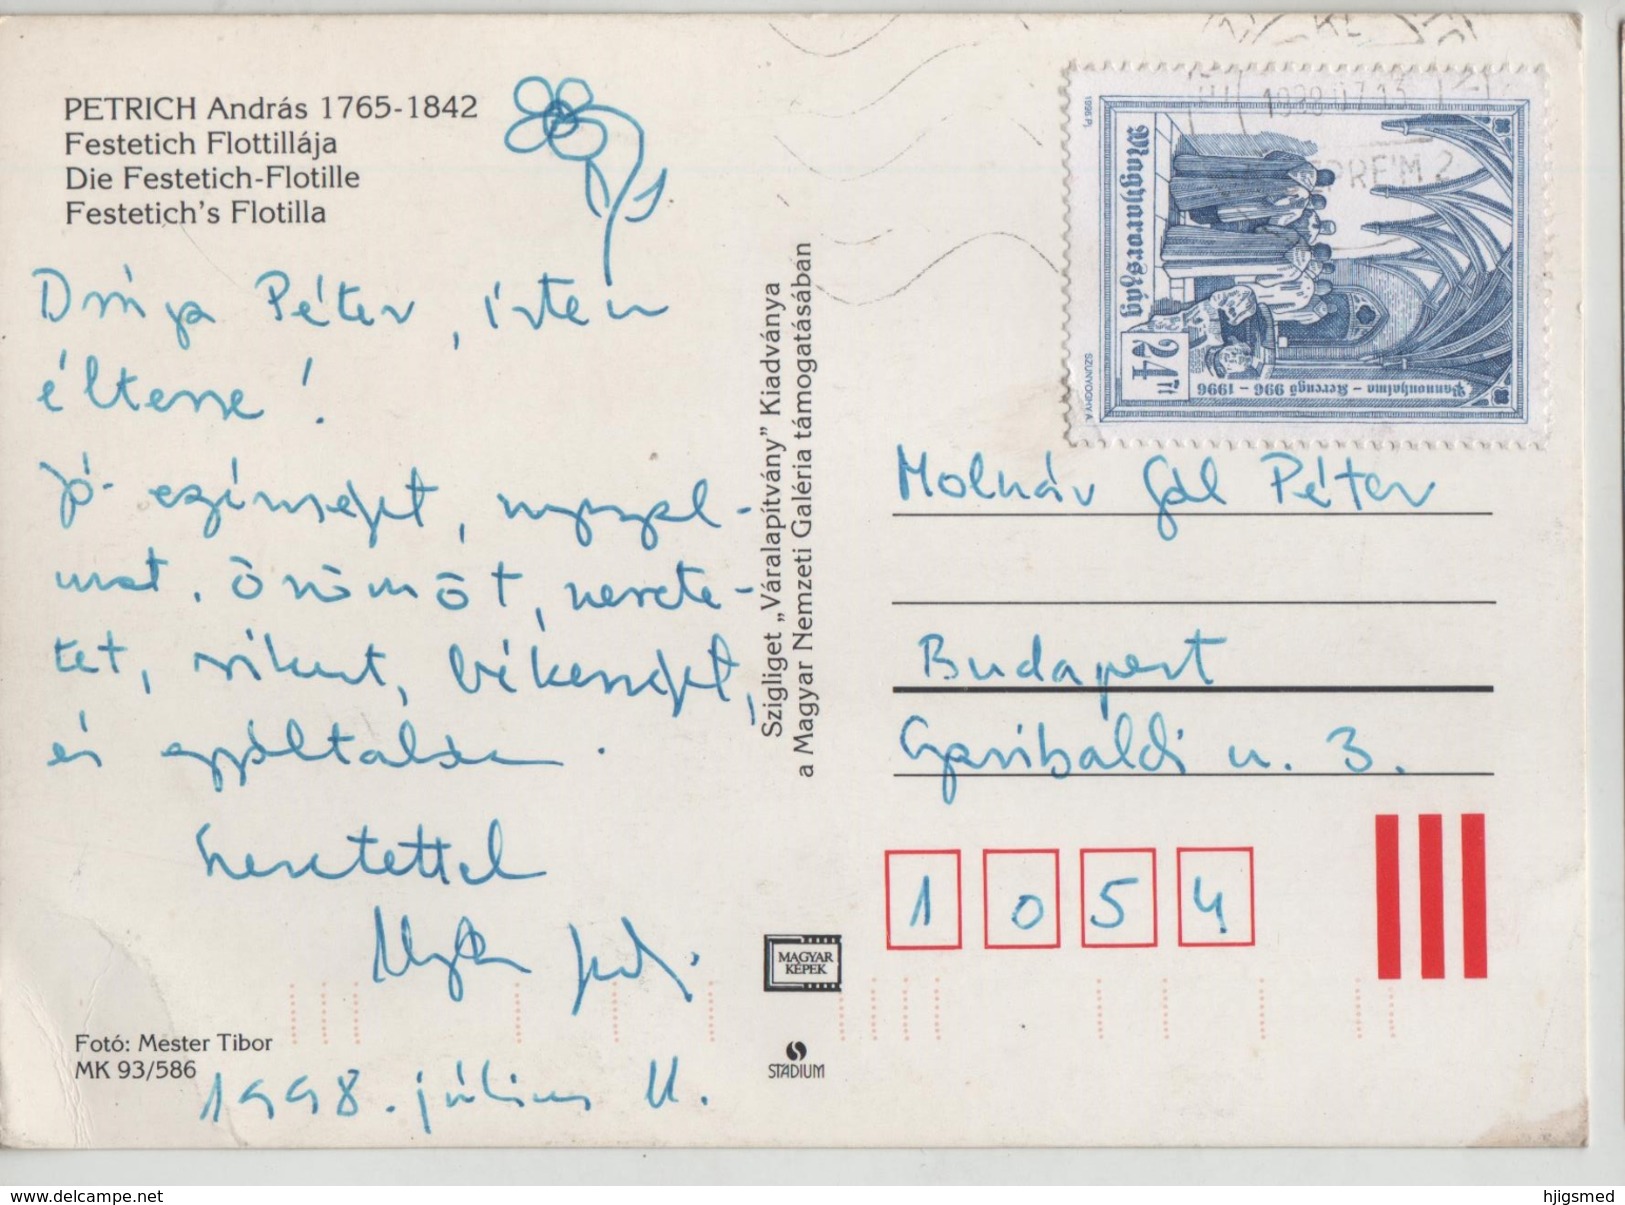 PETRICH András 1765-1842
Festetich Flottillája
Die Festetich-Flotille
Festetich's Flotilla
Drága Péter, isten
éltesse!
Jó egészséget, nyugal-
mat, örömöt, szerete-
tet, sikert, békességet,
és egyáltalán.
Szeretettel
1998. július 11.
Fotó: Mester Tibor
MK 93/586
Szigliget „Váralapítvány” Kiadványa
a Magyar Nemzeti Galéria támogatásában
MAGYAR
KÉPEK
STÁDIUM
1998 07 13
Magyarország
24 Ft
Pannonhalma – Kerengő 996 – 1996
1996 PJ.
SZUNYOGHY A.
Molnár Gál Péter
Budapest
Garibaldi u. 3.
1054
www.delcampe.net
hjigsmed